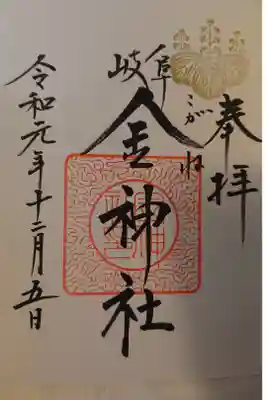 奉拝
岐阜
こがね
金神社
令和元年十二月五日